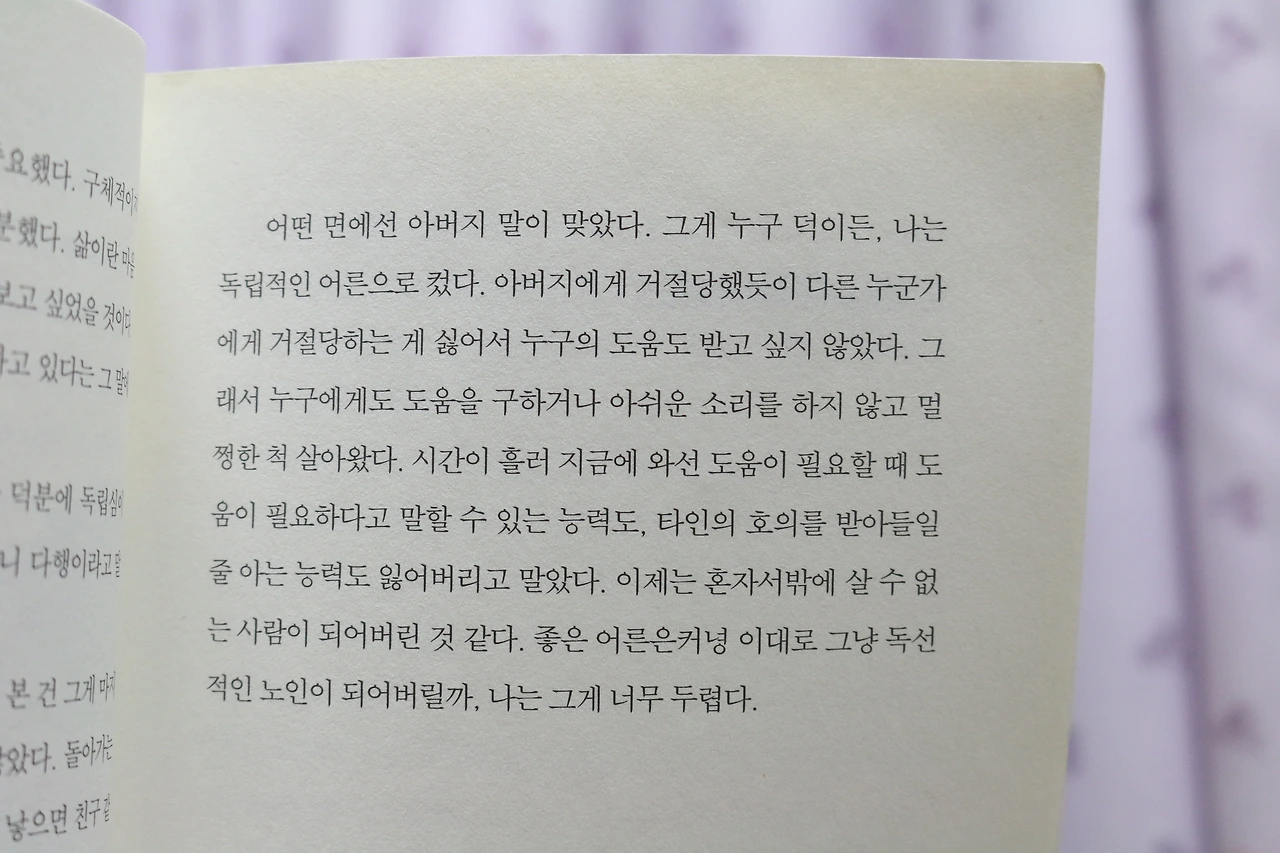 요했다. 구체적이
분했다. 삶이란 마음
보고 싶었을 것이다
하고 있다는 그 말
덕분에 독립심이
니 다행이라고 말
본 건 그게 마지
았다. 돌아가는
낳으면 친구 같
어떤 면에선 아버지 말이 맞았다. 그게 누구 덕이든, 나는
독립적인 어른으로 컸다. 아버지에게 거절당했듯이 다른 누군가
에게 거절당하는 게 싫어서 누구의 도움도 받고 싶지 않았다. 그
래서 누구에게도 도움을 구하거나 아쉬운 소리를 하지 않고 멀
쩡한 척 살아왔다. 시간이 흘러 지금에 와선 도움이 필요할 때 도
움이 필요하다고 말할 수 있는 능력도, 타인의 호의를 받아들일
줄 아는 능력도 잃어버리고 말았다. 이제는 혼자서밖에 살 수 없
는 사람이 되어버린 것 같다. 좋은 어른은커녕 이대로 그냥 독선
적인 노인이 되어버릴까, 나는 그게 너무 두렵다.